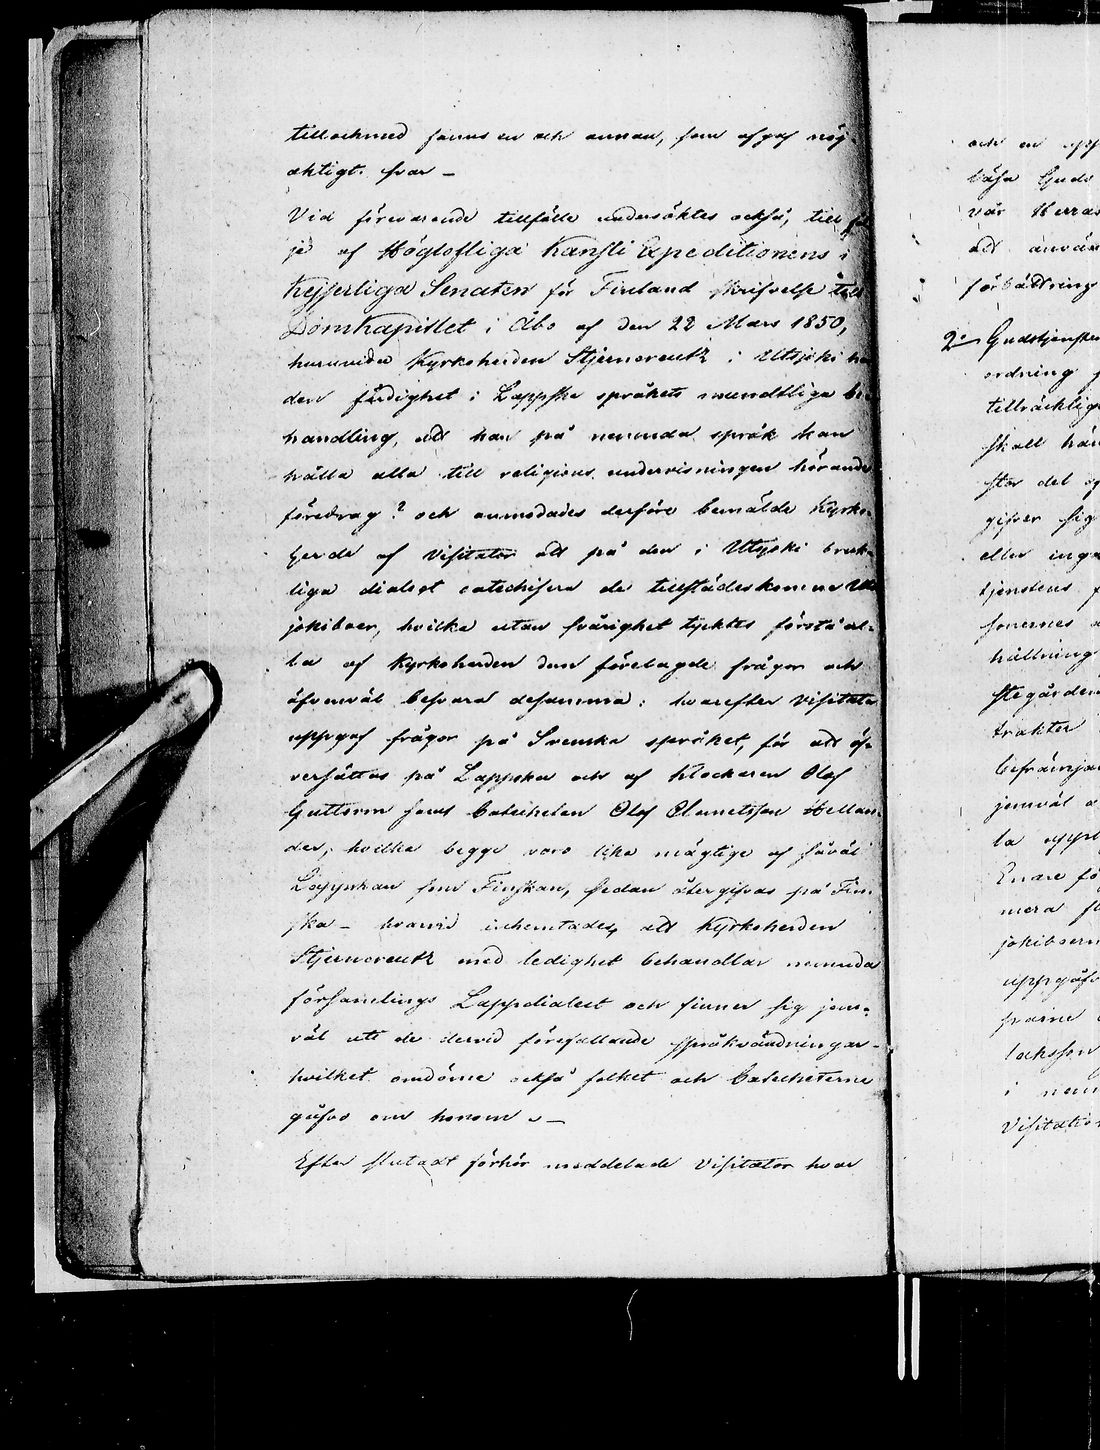 tillochmed fanns en och annan, som afgaf nöj-
aktigt svar –
Vid förevarande tillfälle undersöktes också, till föl
je af Höglofliga Kansli Expeditionens i
Kejserliga Senaten för Finland skrifvelse till
Domkapitlet i Åbo af den 22 Mars 1850,
huruvida Kyrkoherden Stjerncreutz i Utsjoki ha
den färdighet i Lappska språkets mundtliga be-
handling, att han på nemnda språk kan
hålla alla till religions undervisningen hörande
föredrag? och anmodades derföre bemälde Kyrko-
herde af Visitator att på den i Utsjoki bruk-
liga dialect catechisera de tillstädeskomne Uts
jokiboer, hvilka utan svårighet tycktes förstå al-
la af Kyrkoherden dem förelagde frågor och
äfvenväl besvara desamma; hvarefter Visitator
uppgaf frågor på Svenska språket, för att öf-
versättas på Lappska och af Klockaren Olof
Guttorm samt Catecheten Olof Clemetsson Hellan-
der, hvilka begge voro lika mägtige af såväl
Lappskan som Finskan, sedan återgifvas på Fin-
ska – hvarvid inhemtades, att Kyrkoherden
Stjerncreutz med ledighet behandlar nemnda
församlings Lappdialect och finner sig jem-
väl uti de dervid förefallande språkvändningar –
hvilket omdöme också folket och Catecheterne
gåfvo om honom. –
Efter slutadt förhör meddelade Visitator hvar
och en upp
läsa Guds
vår Herras
att använ
förbättring
2:o Gudstjensten
ordning
tillräcklig
skall hän
stor del
gifver sig
eller inga
tjenstens
sonernes
hållning
stegården
trakter
befrämja
jemväl
la
Enare
mera
jokiboern
uppgåfv
i nem
Visitation